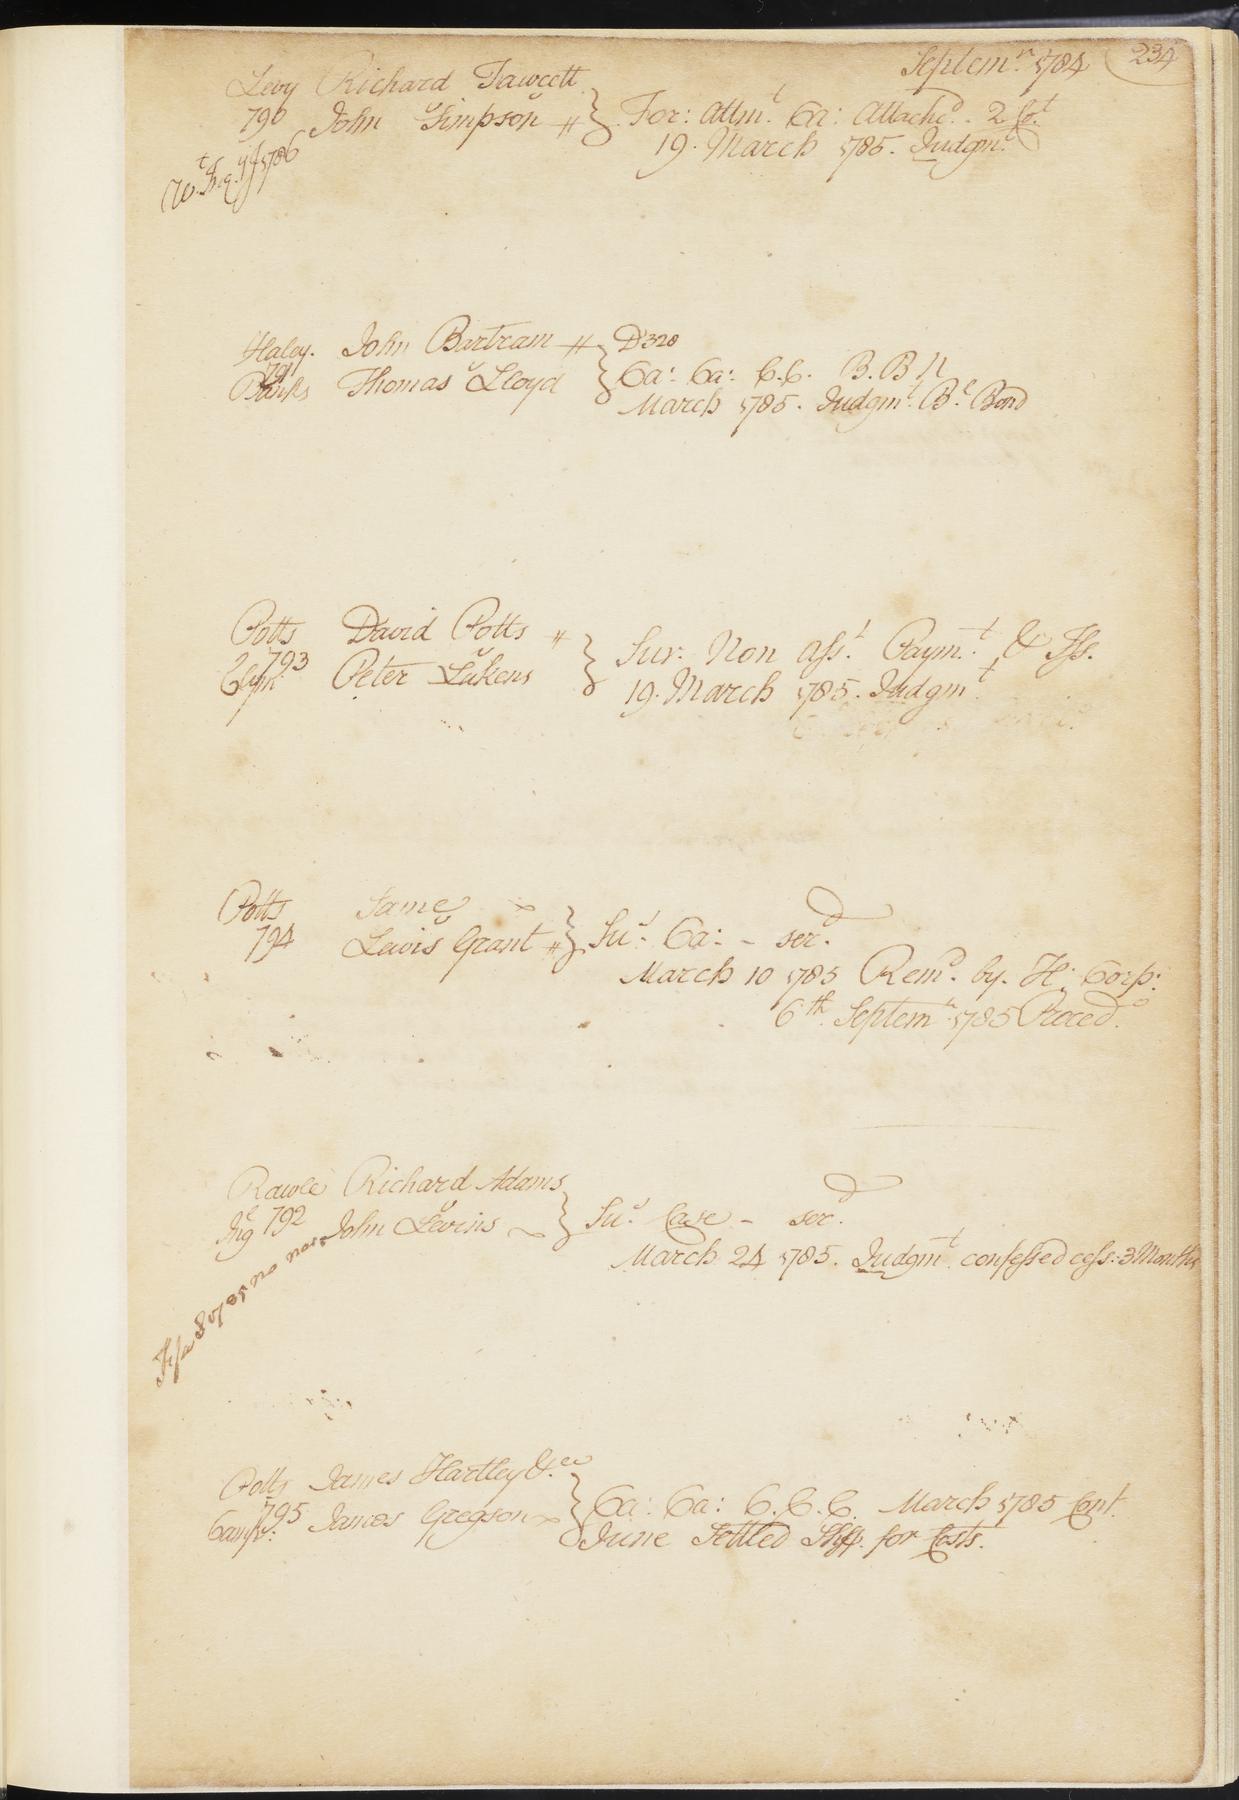 Septemr. 1784 234
Levy Richard Fawcett
790 v
John Simpson # } For: Attmt. Ca: Attachd. 2 Sot.
19. March 1785. Judgmt.
Wt. Inq. 1786
Haley. John Bartram # D320
791 v
Banks Thomas Lloyd } Ca: Ca: C.C. B.B N
March 1785. Judgmt. Bl. Bond
Potts David Potts #
793 v
Clyn Peter Lukens } Sur. Non Asst. Paymt. & Iss.
19. March 1785. Judgmt.
Potts Same
794 v
Lewis Grant # } Sur. Ca: - serd.
March 10 1785 Remd. by. H: Corp:
6th Septemr. 1785 Proced.
Rawle Richard Adams
Ing 792 v
John Levins } Sur. Case - serd.
March 24 1785. Judgmt. confessed cess: 3 Months
Fi fa S 1785 no
Potts James Hartley & Co
795 v
Camp. James Gregson } Ca: Ca: C.C.C. March 1785 Cont.
June Settled Shff. for Costs.